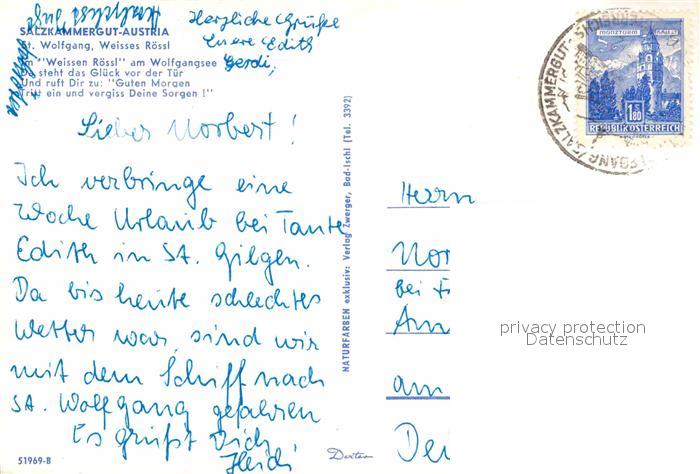 SALZKAMMERGUT-AUSTRIA
St. Wolfgang, Weisses Rössl
Im "Weissen Rössl" am Wolfgangsee
da steht das Glück vor der Tür
Und ruft Dir zu: "Guten Morgen
Tritt ein und vergiss Deine Sorgen!"
Herzliche Grüße
Euere Edith
Gerdi,
Lieber Norbert!
Ich verbringe eine
Woche Urlaub bei Tante
Edith in St. Gilgen.
Da bis heute schlechtes
Wetter war, sind wir
mit dem Schiff nach
St. Wolfgang gefahren
Es grüßt Dich
Heidi
51969-B
NATURFARBEN exklusiv: Verlag Zwerger, Bad-Ischl (Tel. 3392)
Dextra
MÜNZTURM HALL I.T.
1.80
REPUBLIK ÖSTERREICH
Herrn
Nor
bei F
Am
am
Deu
privacy protection
Datenschutz